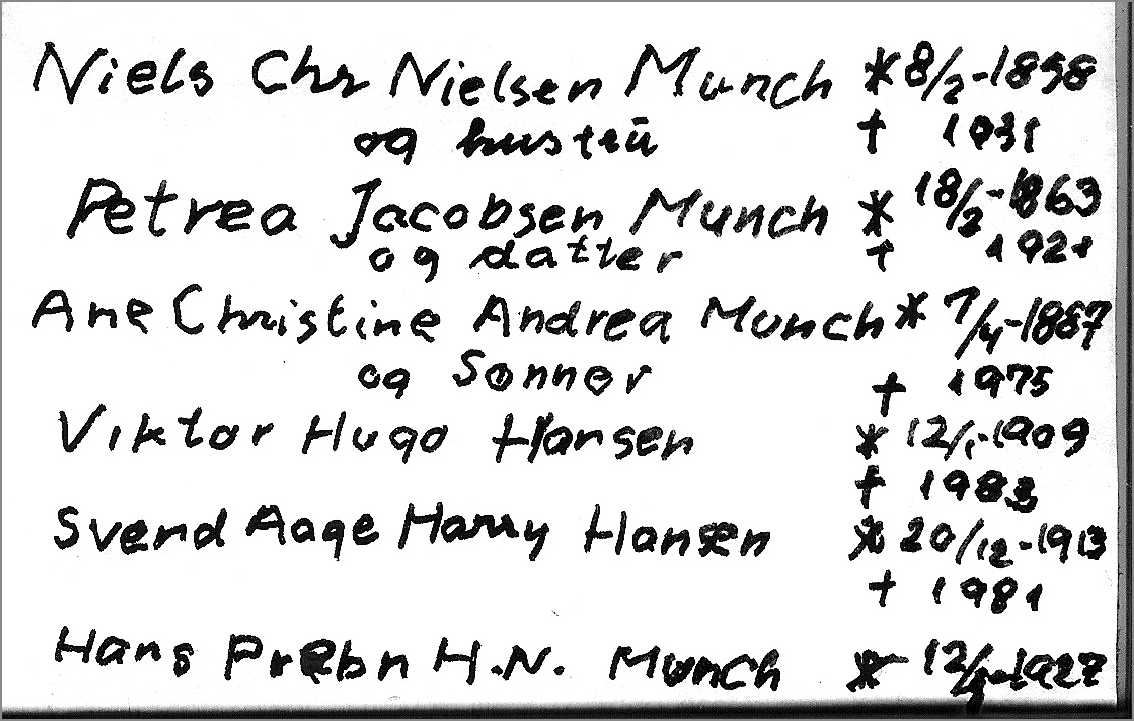 Niels Chr Nielsen Munch * 8/2-1858
og hustrū † 1931
Petrea Jacobsen Munch * 18/2-1863
og datter † 1921
Ane Christine Andrea Munch * 7/4-1887
og Sønner † 1975
Viktor Hugo Hansen * 12/1-1909
† 1983
Svend Aage Harry Hansen * 20/12-1913
† 1981
Hans Prebn H.N. Munch * 12/9-1927